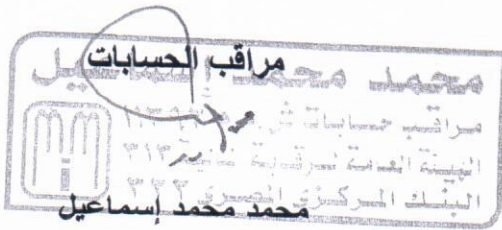 مراقب الحسابات
محمد محمد إسماعيل
مراقب حسابات
الهيئة العامة للرقابة المالية ٣١٣
البنك المركزي المصري ٣٢٢
محمد محمد إسماعيل